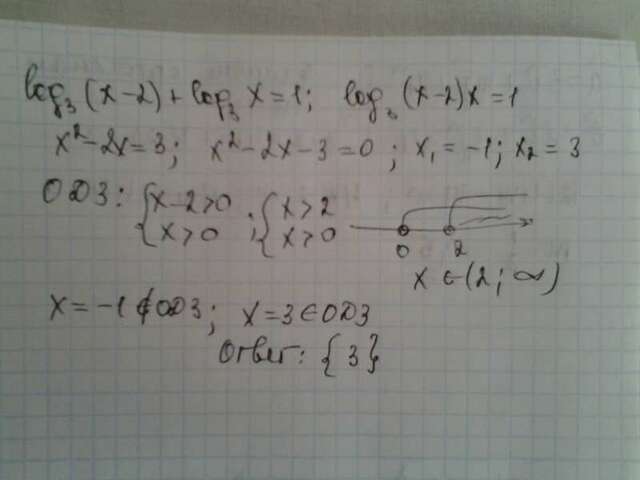 log₃(x-2)+log₃x=1; log₃(x-2)x=1
x²-2x=3; x²-2x-3=0; x₁=-1; x₂=3
ОДЗ: {x-2>0 x>0; {x>2 x>0 0 2
x∈(2;∞)
x=-1∉ОДЗ; x=3∈ОДЗ
Ответ: {3}